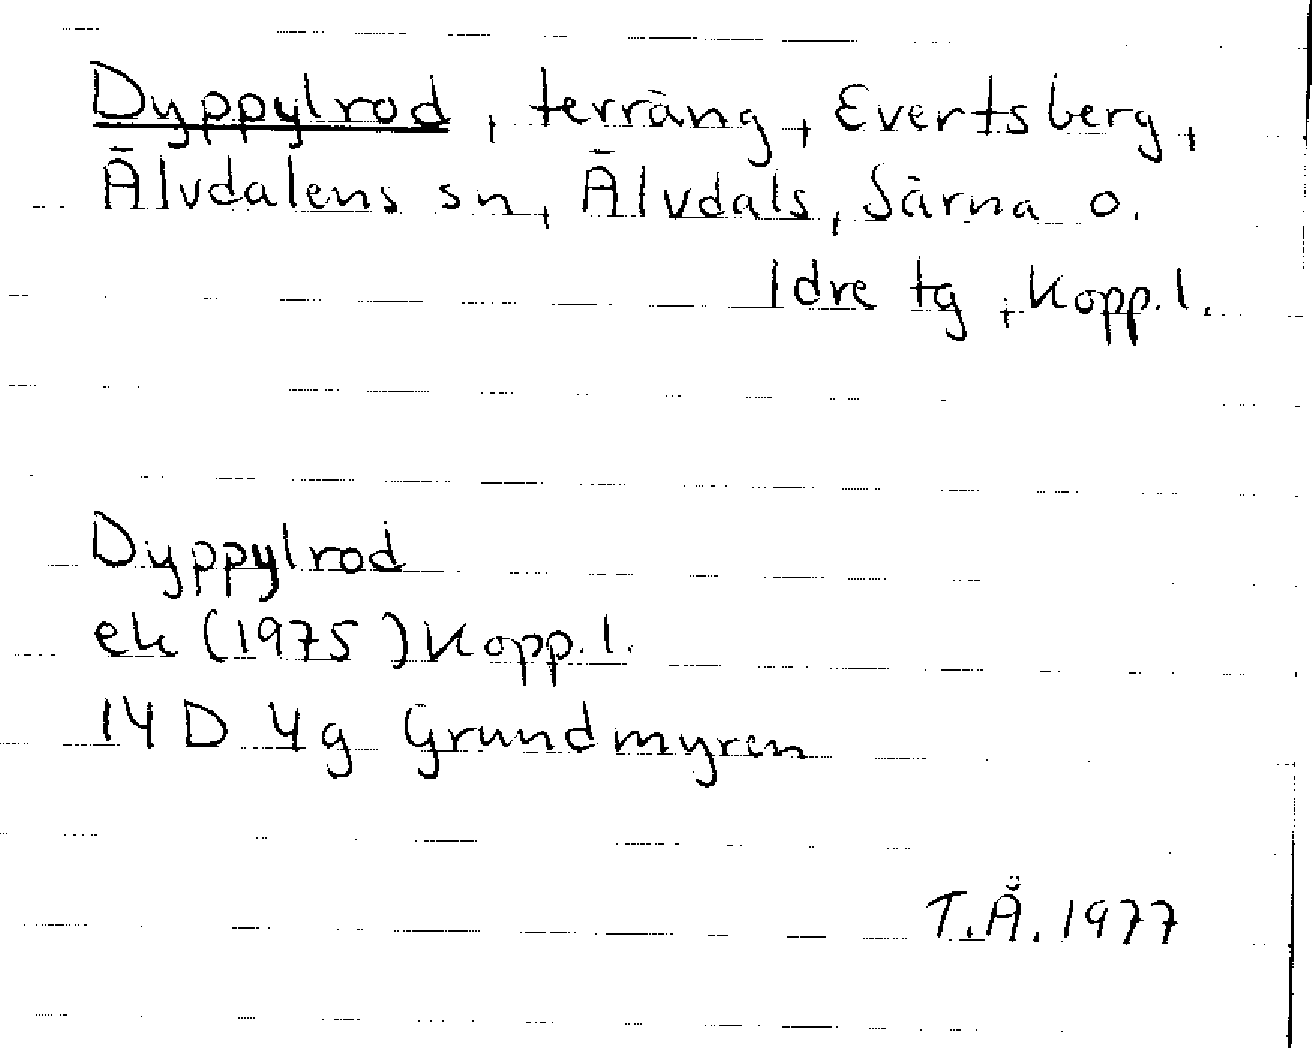 Dyppylrod, terräng, Evertsberg,
Älvdalens sn, Älvdals, Särna o.
Idre tg, Kopp. l.
Dyppylrod
ek (1975) Kopp. l.
14 D 4g Grundmyren
T.Å. 1977